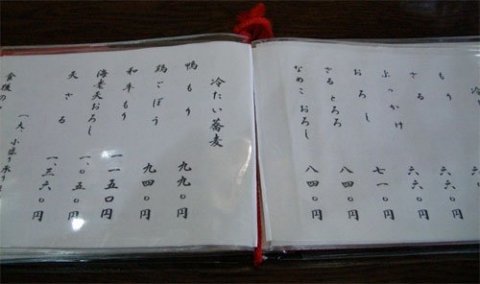 冷
もり
ざる 六六〇円
ぶっかけ 六六〇円
おろし 七一〇円
ざるとろろ 八四〇円
なめこおろし 八四〇円
冷たい蕎麦
鴨もり 九九〇円
鶏ごぼう 九四〇円
和牛もり 一一五〇円
海老天おろし 一、〇五〇円
天ざる 一、三六〇円
食後の